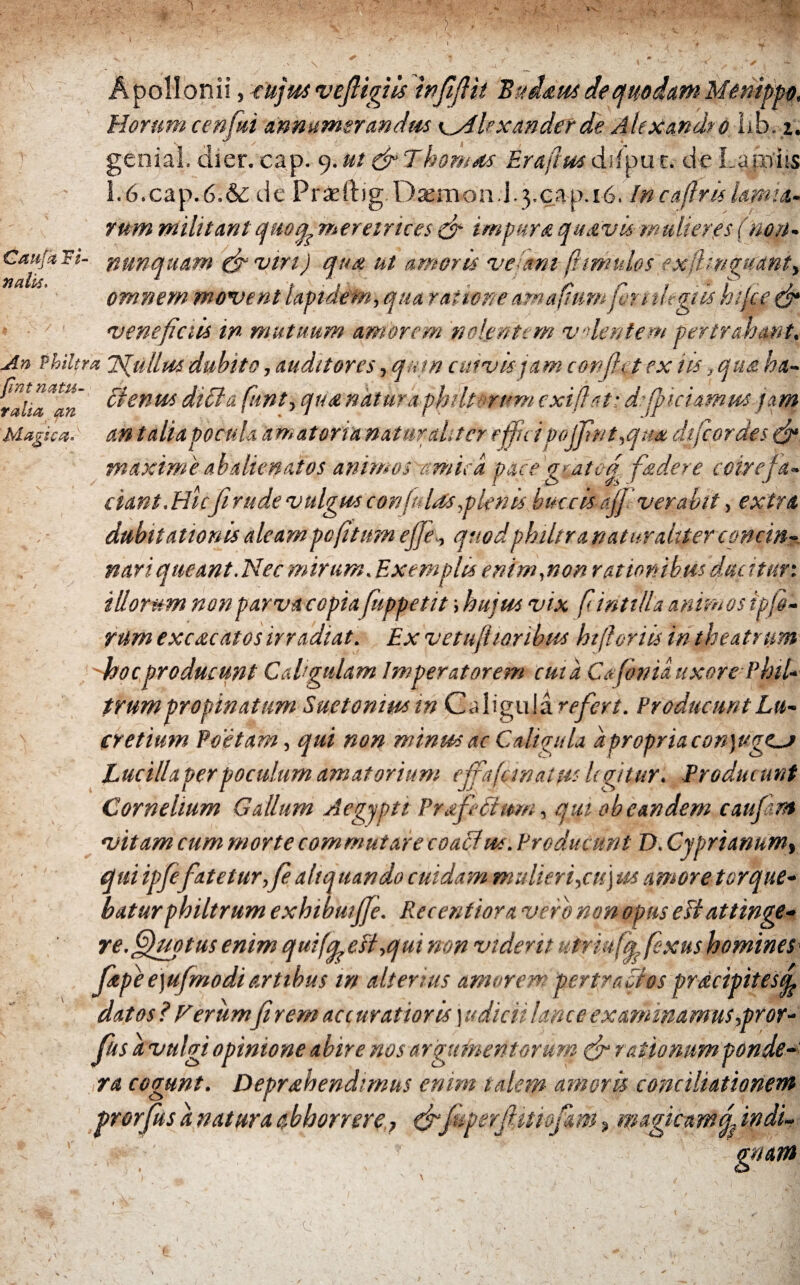 Apollonii, cujus vestigiis insistit Budæus de quodam Menippo.
Horum censui annumerandus Alexander de Alexandro lib. 2.
genial. dier. cap. 9. ut & Thomas Erastus disput. de Lamiis
l.6.cap.6.& de Præstig. Dæmon.l.3.cap.16. In castris lamia-
rum militant quoq; meretrices & impuræ quævis mulieres (non-
Causa Fi-
nalis.
nunquam & viri) quæ ut amoris vesani stimulos exstinguant,
omnem movent lapidem, qua ratione amasium sortilegiis hisce &
veneficiis in mutuum amorem nolentem volentem pertrahant.
An Philtra
sint natu-
ralia an
Magica.
Nullus dubito, auditores, quin cuivis jam constet ex iis, quæ ha-
ctenus dicta sunt, quæ natura philtrorum existat: dispiciamus jam
an talia pocula amatoria naturaliter effici possint, quæ discordes &
maxime abalienatos animos amica pace gratoq; fædere coire fa-
ciant. Hic si rude vulgus consulas, plenis buccis asseverabit, extra
dubitationis aleam positum esse, quod philtra naturaliter concin-
nari queant. Nec mirum. Exemplis enim, non rationibus ducitur:
illorum non parva copia suppetit; hujus vix scintilla animos ipso-
rum excæcatos irradiat. Ex vetustioribus historiis in theatrum
hoc producunt Caligulam Imperatorem cui à Cæsonia uxore Phil-
trum propinatum Suetonius in Caligulâ refert. Producunt Lu-
cretium Poëtam, qui non minus ac Caligula à propria conjuge
Lucilla per poculum amatorium effascinatus legitur. Producunt
Cornelium Gallum Aegypti Præfectum, qui ob eandem causam
vitam cum morte commutare coactus. Producunt D. Cyprianum,
qui ipse fatetur, se aliquando cuidam mulieri, cujus amore torque-
batur philtrum exhibuisse. Recentiora vero non opus est attinge-
re. Quotus enim quisq; est, qui non viderit utriusq; sexus homines
sæpe ejusmodi artibus in alterius amorem pertractos præcipitesq;
datos? Verùm si rem accuratioris judicii lance examinamus, pror-
sus à vulgi opinione abire nos argumentorum & rationum ponde-
ra cogunt. Deprehendimus enim talem amoris conciliationem
prorsus à natura abhorrere, & superstitiosam, magicamq; indi-
gnam